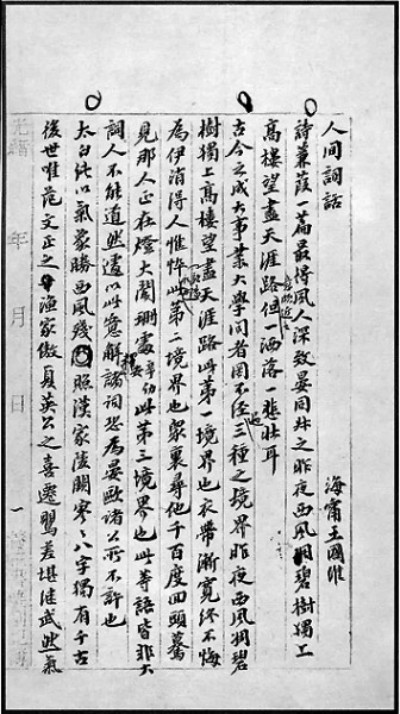 人间詞話
海甯王國維
詩蒹葭一篇最得風人深致晏同叔之昨夜西風凋碧樹獨上
高樓望盡天涯路意頗近之但一洒落一悲壯耳
古今之成大事業大學問者罔不经過三種之境界昨夜西風凋碧
樹獨上高樓望盡天涯路此第一境界也衣帶漸寬終不悔
為伊消得人憔悴此第二境界也衆裏尋他千百度回頭驀
見那人正在燈火闌珊處辛幼安此第三境界也此等語皆非大
詞人不能道然遽以此意解諸詞恐為晏歐諸公所不許也
太白純以氣象勝西風殘照漢家陵闕寥〻八字獨有千古
後世唯范文正之漁家傲夏英公之喜遷鶯差堪继武然氣
光緒 年 月 日 一